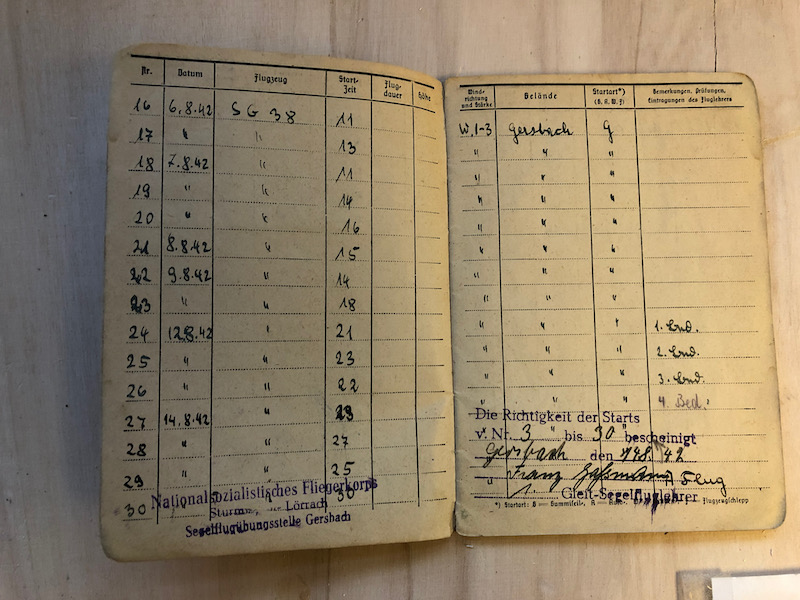 Nr. Datum Flugzeug Start-Zeit Flug-dauer Höhe
16 6.8.42 SG 38 11
17 " " 13
18 7.8.42 " 11
19 " " 14
20 " " 16
21 8.8.42 " 15
22 9.8.42 " 14
23 " " 18
24 12.8.42 " 21
25 " " 23
26 " " 22
27 14.8.42 " 23
28 " " 27
29 " " 25
30 30
Nationalsozialistisches Fliegerkorps
Lörrach
Segelflugübungsstelle Gersbach
Wind-richtung und Stärke Gelände Startart*) (G, R, W, F) Bemerkungen, Prüfungen, Eintragungen des Fluglehrers
W. 1-3 Gersbach G
" " "
" " "
" " "
" " "
" " "
" " "
" " "
" " " 1. Bed.
" " " 2. Bed.
" " " 3. Bed.
" " " 4. Bed.
Die Richtigkeit der Starts
v. Nr. 3 bis 30 bescheinigt
Gersbach den 42
Franz Flug
Gleit-Segelfluglehrer
*) Startart: G = Gummiseil, Flugzeugschlepp